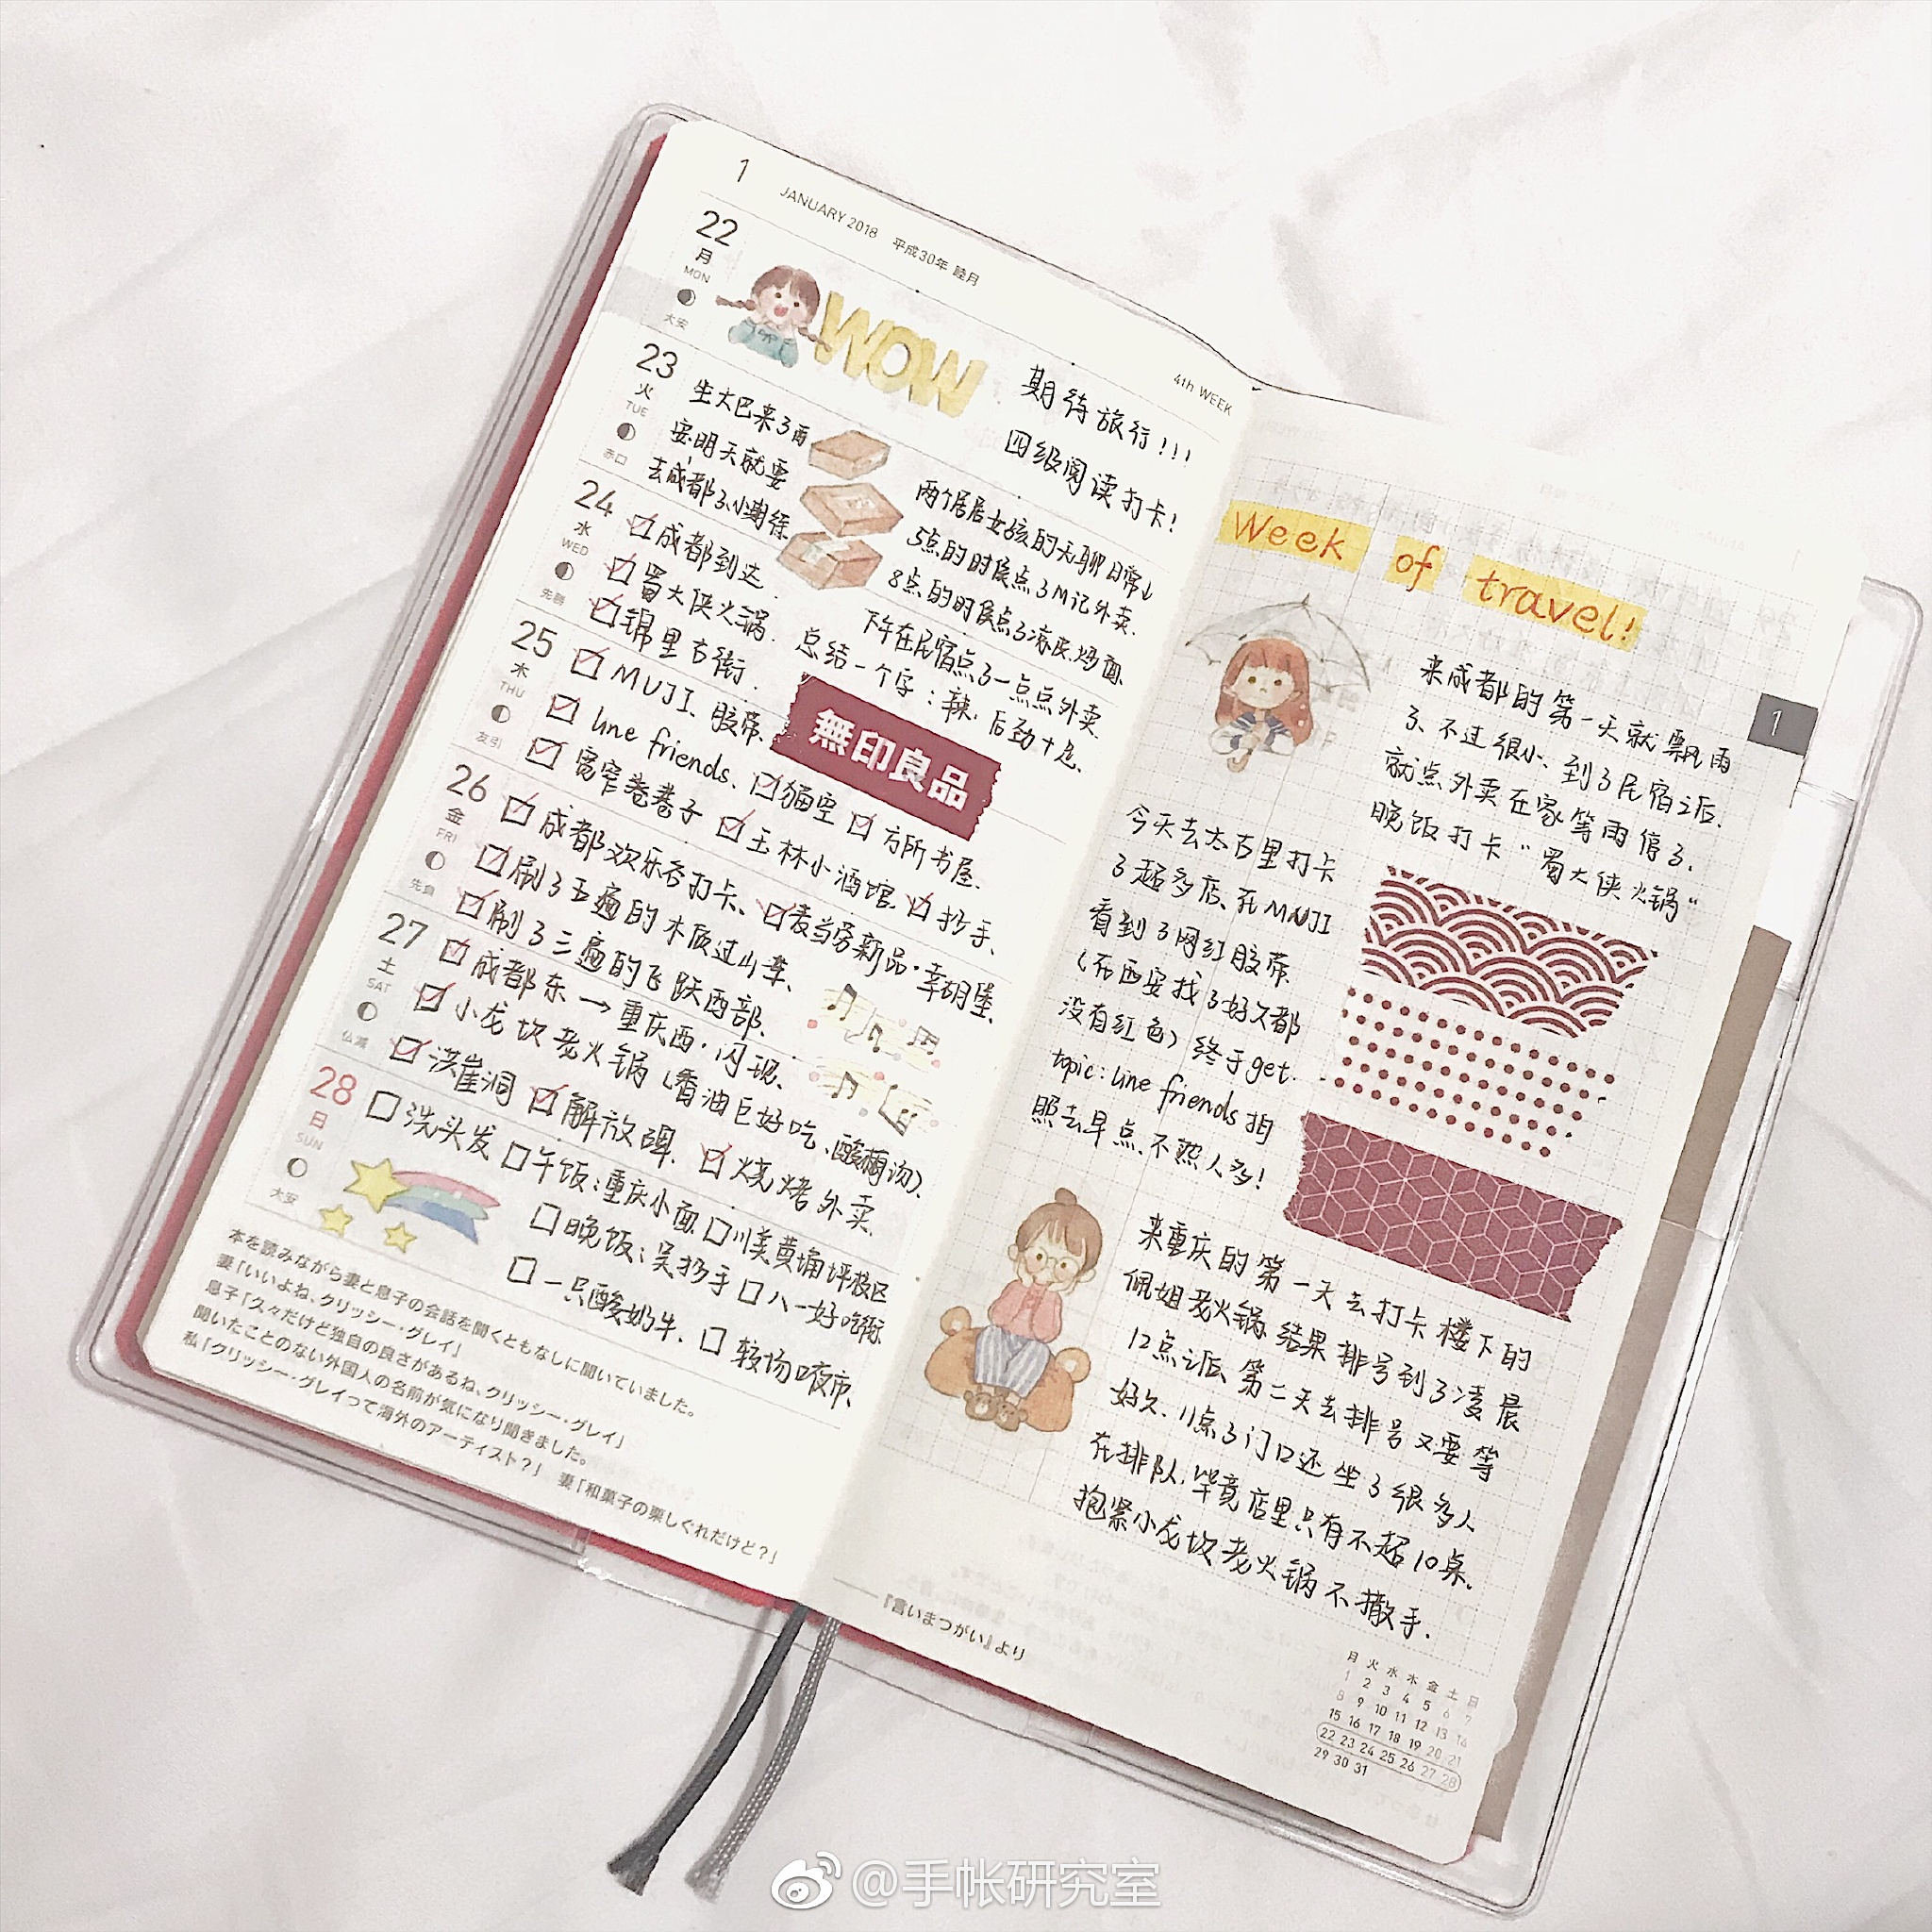 1 JANUARY 2018 平成30年 睦月
4th WEEK
22
月
MON
大安
WOW
期待旅行!!!
四级阅读打卡!
23
火
TUE
赤口
生大巴来了西
安,明天就要
去成都了、小激
两个居居女孩的无聊日常↓
5点的时候点了M记外卖.
8点的时候点了凉皮.炒面.
24
水
WED
先勝
成都到达.
蜀大侠火锅.
锦里古街.
下午在民宿点了一点点外卖.
总结一个字:辣.后劲十足.
25
木
THU
友引
MUJI、胶带.
無印良品
line friends、猫空 方所书屋.
宽窄巷巷子 玉林小酒馆. 抄手、
26
金
FRI
先負
成都欢乐谷打卡、麦当劳新品·辛明堡.
刷了五遍的木质过山车、
刷了三遍的飞跃西部、
27
土
SAT
仏滅
成都东→重庆西·闪现、
小龙坎老火锅(香油巨好吃、酸梅汤).
洪崖洞 解放碑. 烧烤外卖.
28
日
SUN
大安
洗头发 午饭:重庆小面. 川美黄桷坪校区
晚饭:吴抄手 八一好吃街
一只酸奶牛、 较场口夜市.
本を読みながら妻と息子の会話を聞くともなしに聞いていました。
妻「いいよね、クリッシー・グレイ」
息子「久々だけど独自の良さがあるね、クリッシー・グレイ」
聞いたことのない外国人の名前が気になり聞きました。
私「クリッシー・グレイって海外のアーティスト?」 妻「和菓子の栗しぐれだけど?」
Week of travel!
来成都的第一天就飘雨
了、不过很小、到了民宿之后.
就点外卖在家等雨停了.
晚饭打卡“蜀大侠火锅“
今天去太古里打卡
了超多店、在MUJI
看到了网红胶带.
(在西安找了好久都
没有红色)终于get.
topic:line friends 拍
照去早点.不然人多!
来重庆的第一天去打卡楼下的
佩姐老火锅.结果排号到了凌晨
12点以后、第二天去排号又要等
好久.11点了门口还坐了很多人
在排队.毕竟店里只有不超10桌.
抱紧小龙坎老火锅不撒手.
1
『言いまつがい』より
月 火 水 木 金 土 日
1 2 3 4 5 6 7
8 9 10 11 12 13 14
15 16 17 18 19 20 21
22 23 24 25 26 27 28
29 30 31
@手帐研究室